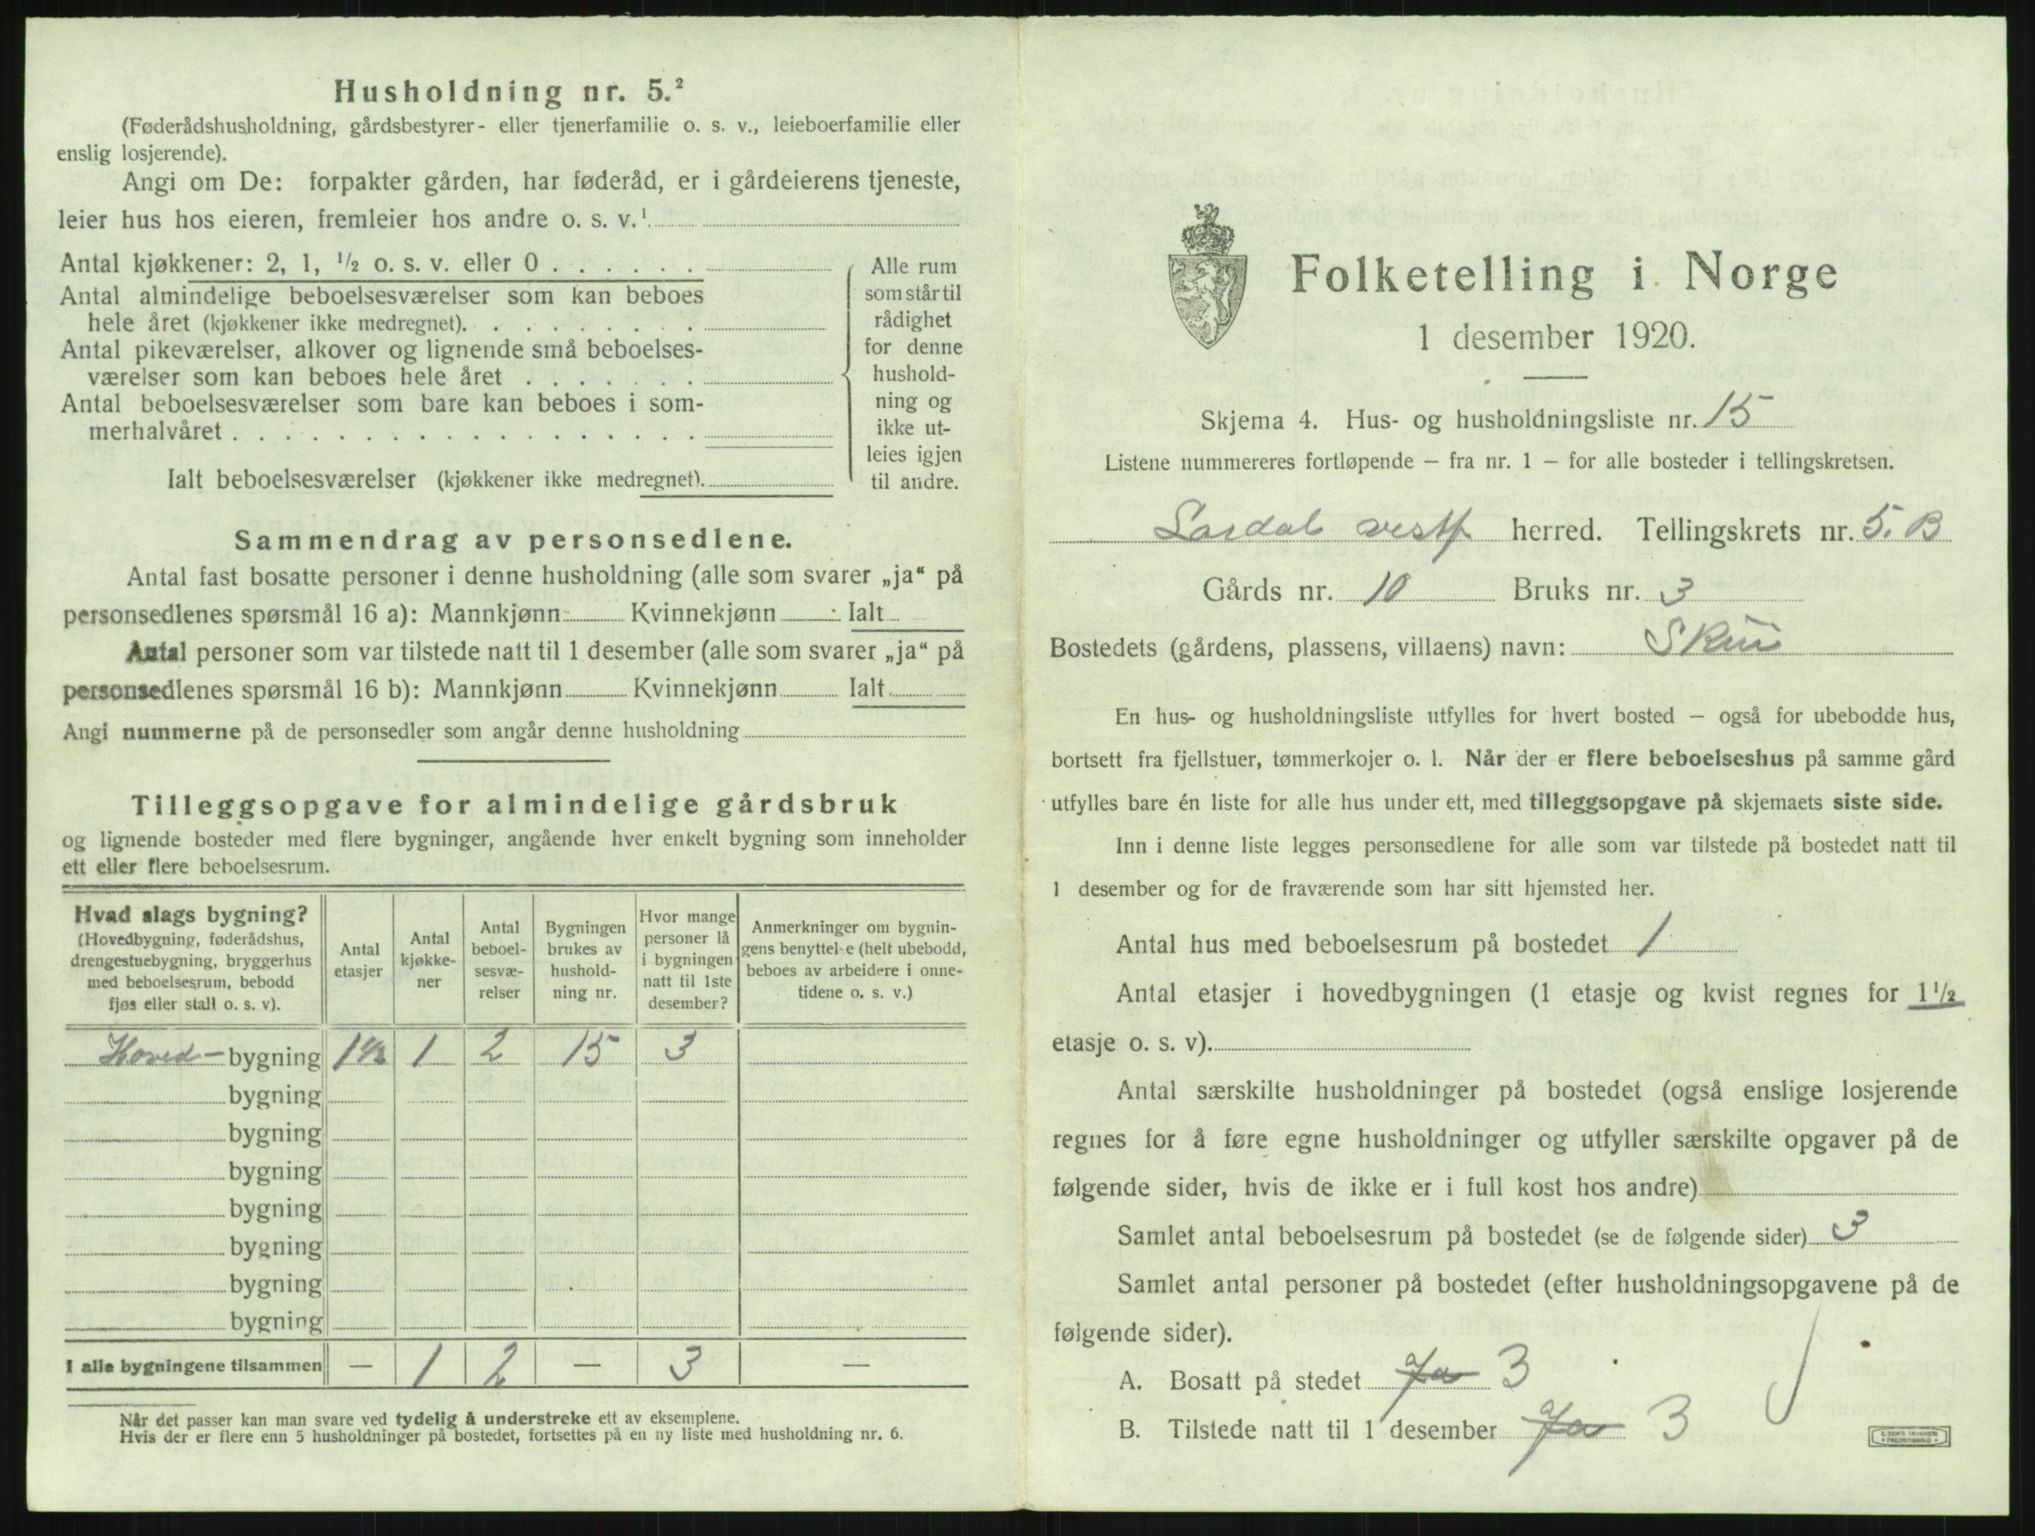 Husholdning nr. 5.²
(Føderådshusholdning, gårdsbestyrer- eller tjenerfamilie o. s. v., leieboerfamilie eller
enslig losjerende).
Angi om De: forpakter gården, har føderåd, er i gårdeierens tjeneste,
leier hus hos eieren, fremleier hos andre o. s. v.¹
Antal kjøkkener: 2, 1, ½ o. s. v. eller 0 . . . . . .
Antal almindelige beboelsesværelser som kan beboes
hele året (kjøkkener ikke medregnet). . . . . . . . .
Antal pikeværelser, alkover og lignende små beboelses-
værelser som kan beboes hele året . . . . . . .
Antal beboelsesværelser som bare kan beboes i som-
merhalvåret . . . . . . . . . . . . . . . . . .
Ialt beboelsesværelser (kjøkkener ikke medregnet).
Alle rum
som står til
rådighet
for denne
hushold-
ning og
ikke ut-
leies igjen
til andre.
Sammendrag av personsedlene.
Antal fast bosatte personer i denne husholdning (alle som svarer „ja“ på
personsedlenes spørsmål 16 a): Mannkjønn Kvinnekjønn Ialt
Antal personer som var tilstede natt til 1 desember (alle som svarer „ja“ på
personsedlenes spørsmål 16 b): Mannkjønn Kvinnekjønn Ialt
Angi nummerne på de personsedler som angår denne husholdning
Tilleggsopgave for almindelige gårdsbruk
og lignende bosteder med flere bygninger, angående hver enkelt bygning som inneholder
ett eller flere beboelsesrum.
Hvad slags bygning?
(Hovedbygning, føderådshus,
drengestuebygning, bryggerhus
med beboelsesrum, bebodd
fjøs eller stall o. s. v).
Antal
etasjer
Antal
kjøkke-
ner
Antal
beboel-
sesvæ-
relser
Bygningen
brukes av
hushold-
ning nr.
Hvor mange
personer lå
i bygningen
natt til 1ste
desember?
Anmerkninger om bygnin-
gens benyttelse (helt ubebodd,
beboes av arbeidere i onne-
tidene o. s. v.)
Hoved- bygning 1½ 1 2 15 3
bygning
bygning
bygning
bygning
bygning
bygning
bygning
I alle bygningene tilsammen — 1 2 — 3 —
Når det passer kan man svare ved tydelig å understreke ett av eksemplene.
Hvis der er flere enn 5 husholdninger på bostedet, fortsettes på en ny liste med husholdning nr. 6.
Folketelling i Norge
1 desember 1920.
Skjema 4. Hus- og husholdningsliste nr. 15
Listene nummereres fortløpende – fra nr. 1 – for alle bosteder i tellingskretsen.
Lardal vestf herred. Tellingskrets nr. 5. B
Gårds nr. 10 Bruks nr. 3
Bostedets (gårdens, plassens, villaens) navn:
En hus- og husholdningsliste utfylles for hvert bosted – også for ubebodde hus,
bortsett fra fjellstuer, tømmerkojer o. l. Når der er flere beboelseshus på samme gård
utfylles bare én liste for alle hus under ett, med tilleggsopgave på skjemaets siste side.
Inn i denne liste legges personsedlene for alle som var tilstede på bostedet natt til
1 desember og for de fraværende som har sitt hjemsted her.
Antal hus med beboelsesrum på bostedet 1
Antal etasjer i hovedbygningen (1 etasje og kvist regnes for 1½
etasje o. s. v).
Antal særskilte husholdninger på bostedet (også enslige losjerende
regnes for å føre egne husholdninger og utfyller særskilte opgaver på de
følgende sider, hvis de ikke er i full kost hos andre)
Samlet antal beboelsesrum på bostedet (se de følgende sider) 3
Samlet antal personer på bostedet (efter husholdningsopgavene på de
følgende sider).
A. Bosatt på stedet Ja 3
B. Tilstede natt til 1 desember Ja 3